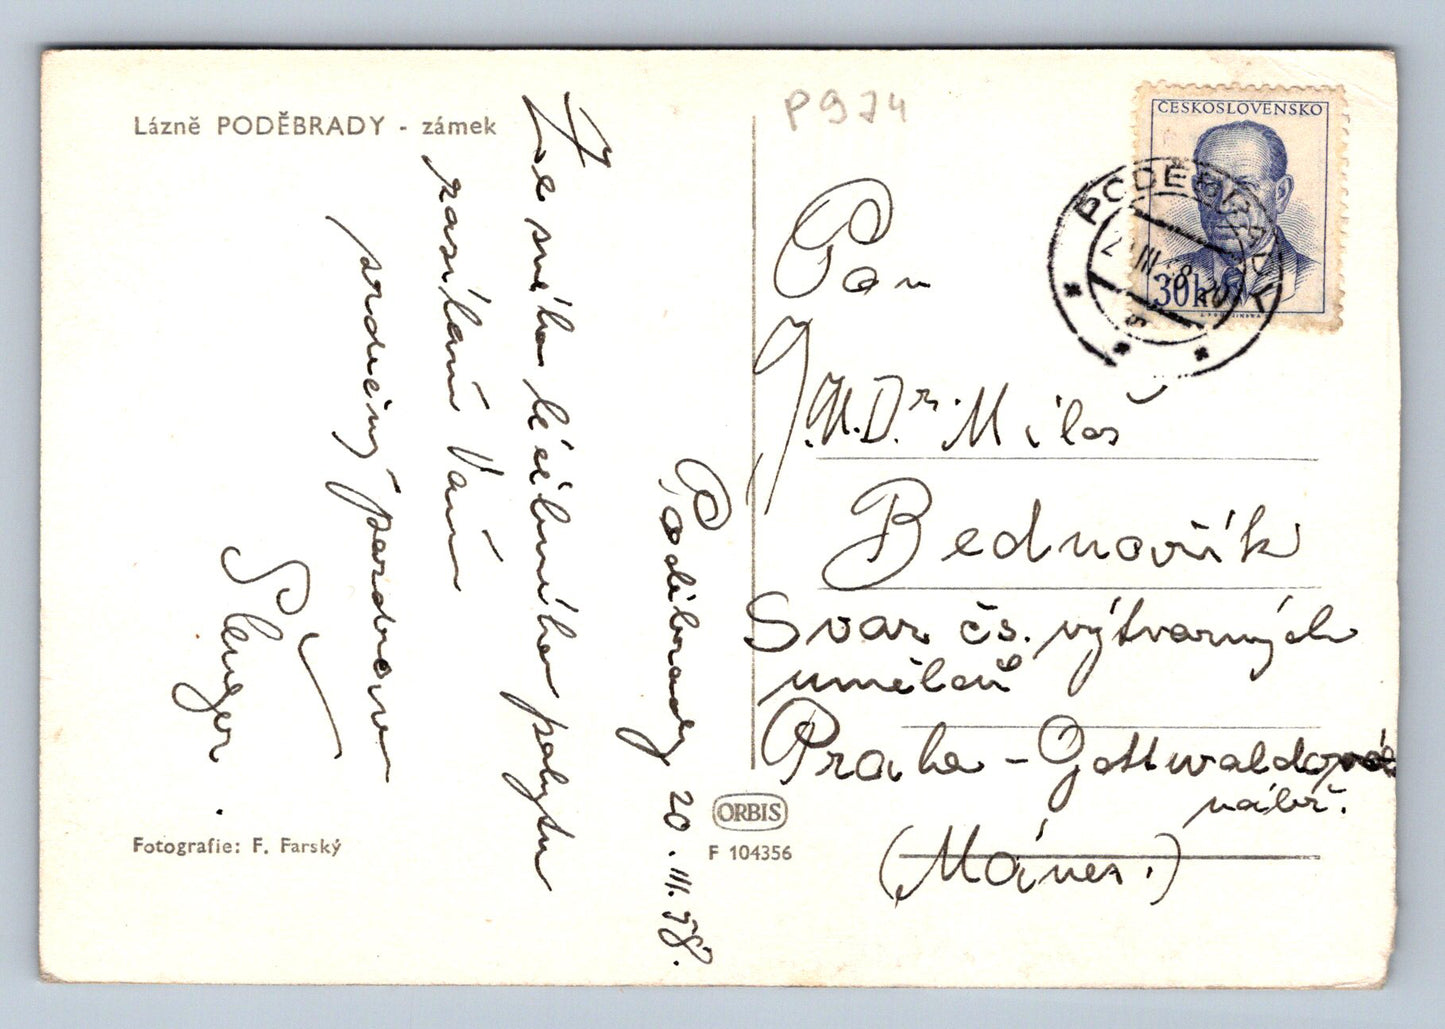 Lázně PODĚBRADY - zámek
P974
Ze svého léčebného pobytu
zasílám Vám
srdečný pozdrav
Poděbrady 20. III. 58.
Fotografie: F. Farský
ORBIS
F 104356
ČESKOSLOVENSKO
30h
PODĚBRADY
Pan
J.U.Dr. Miloš
Bednařík
Svaz čs. výtvarných
umělců
Praha - Gottwaldovo
nábř.
(Mánes.)